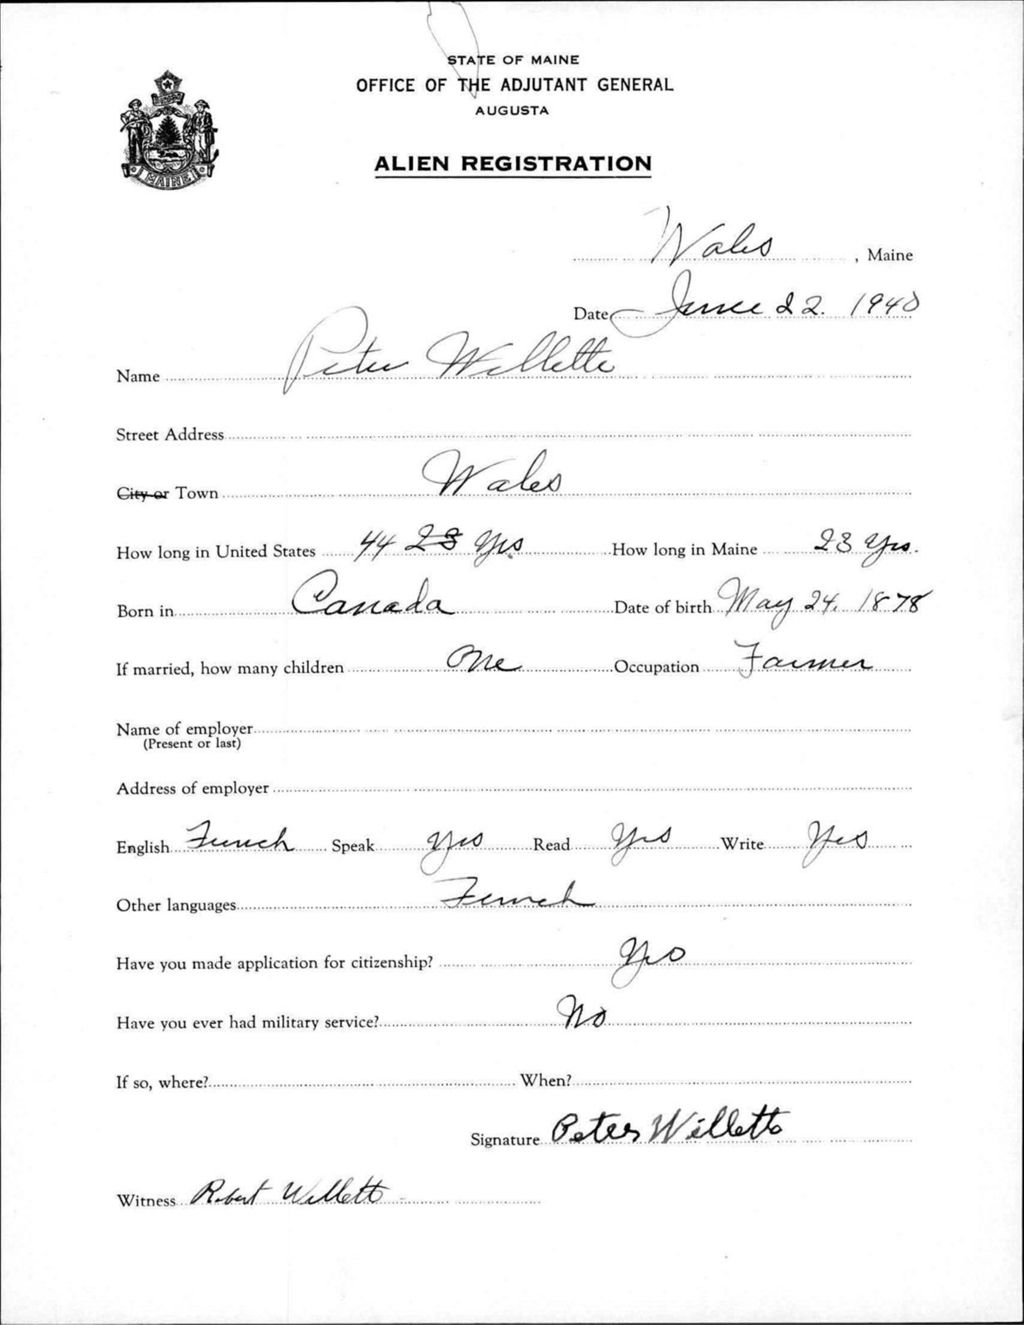 STATE OF MAINE
OFFICE OF THE ADJUTANT GENERAL
AUGUSTA
ALIEN REGISTRATION
MAINE
Wales, Maine
Date June 22. 1940
Name Peter Willette
Street Address
City or Town Wales
How long in United States 44 28 Yrs How long in Maine 28 Yrs.
Born in Canada Date of birth May 24. 1878
If married, how many children One Occupation Farmer
Name of employer
(Present or last)
Address of employer
English French Speak Yes Read Yes Write Yes
Other languages French
Have you made application for citizenship? Yes
Have you ever had military service? No
If so, where? When?
Signature Peter Willette
Witness Robert Willette